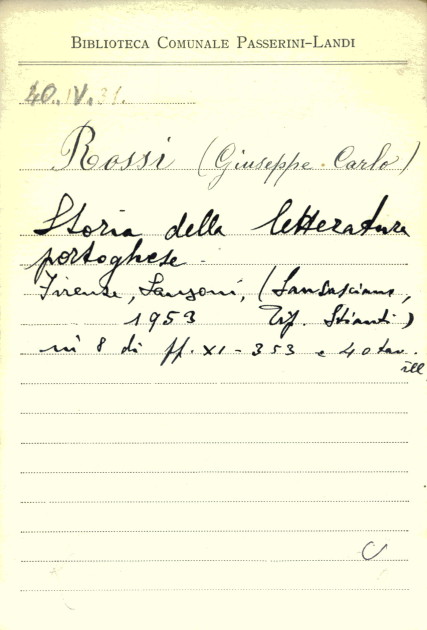 BIBLIOTECA COMUNALE PASSERINI-LANDI
40.IV.31.
Rossi (Giuseppe Carlo)
Storia della letteratura
portoghese.
Firenze, Sansoni, (Sansasciano,
1953 Tip. Stianti)
in 8 di pp. XI-353 e 40 tav.
ill
C